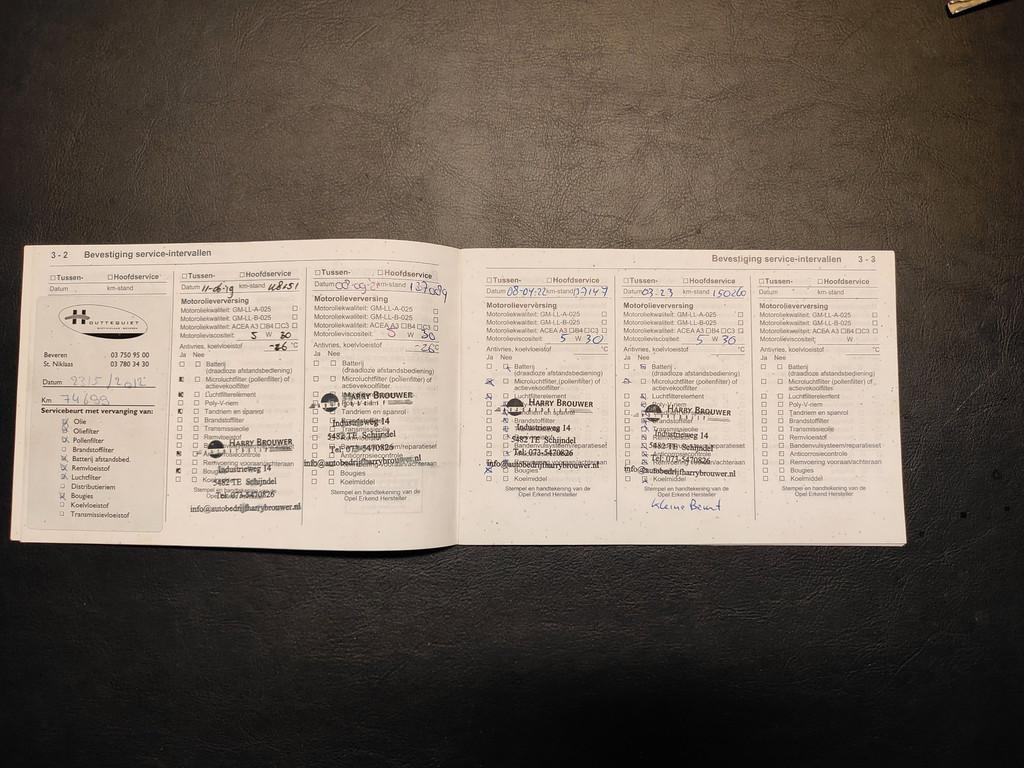 3 - 2 Bevestiging service-intervallen
Tussen- Hoofdservice
Datum km-stand
HOUTTEQUIET
Beveren 03 750 95 00
St. Niklaas 03 780 34 30
Datum
Km 74699
Servicebeurt met vervanging van:
Olie
Oliefilter
Pollenfilter
Brandstoffilter
Batterij afstandsbed.
Remvloeistof
Luchtfilter
Distributieriem
Bougies
Koelvloeistof
Transmissievloeistof
Tussen- Hoofdservice
Datum km-stand
Motorolieverversing
Motoroliekwaliteit: GM-LL-A-025
Motoroliekwaliteit: GM-LL-B-025
Motoroliekwaliteit: ACEA A3 B4 C3
Motorolieviscositeit: 5 W 30
Antivries, koelvloeistof -26 °C
Ja Nee
Batterij
(draadloze afstandsbediening)
Microluchtfilter (pollenfilter) of
actievekoolfilter
Luchtfilterelement
Poly-V-riem
Tandriem en spanrol
Brandstoffilter
Transmissieolie
Remvloeistof
HARRY BROUWER
Anticorrosiecontrole
Remvoering vooraan/achteraan
Industrieweg 14
5482 TE Schijndel
Tel: 073-5470826
info@autobedrijfharrybrouwer.nl
Tussen- Hoofdservice
Datum km-stand
Motorolieverversing
Motoroliekwaliteit: GM-LL-A-025
Motoroliekwaliteit: GM-LL-B-025
Motoroliekwaliteit: ACEA A3 B4 C3
Motorolieviscositeit: 5 W 30
Antivries, koelvloeistof -26 °C
Ja Nee
Batterij
(draadloze afstandsbediening)
Microluchtfilter (pollenfilter) of
actievekoolfilter
HARRY BROUWER
Tandriem en spanrol
Industrieweg 14
5482 TE Schijndel
Tel: 073-5470826
Anticorrosiecontrole
info@autobedrijfharrybrouwer.nl
Bougies
Koelmiddel
Stempel en handtekening van de
Opel Erkend Hersteller
Bevestiging service-intervallen 3 - 3
Tussen- Hoofdservice
Datum 08-04-22 km-stand
Motorolieverversing
Motoroliekwaliteit: GM-LL-A-025
Motoroliekwaliteit: GM-LL-B-025
Motoroliekwaliteit: ACEA A3 B4 C3
Motorolieviscositeit: 5 W 30
Antivries, koelvloeistof °C
Ja Nee
Batterij
(draadloze afstandsbediening)
Microluchtfilter (pollenfilter) of
actievekoolfilter
Luchtfilterelement
HARRY BROUWER
Tandriem en spanrol
Brandstoffilter
Industrieweg 14
5482 TE Schijndel
Bandenvulsysteem/reparatieset
Tel: 073-5470826
info@autobedrijfharrybrouwer.nl
Bougies
Koelmiddel
Stempel en handtekening van de
Opel Erkend Hersteller
Tussen- Hoofdservice
Datum 03-23 km-stand 150260
Motorolieverversing
Motoroliekwaliteit: GM-LL-A-025
Motoroliekwaliteit: GM-LL-B-025
Motoroliekwaliteit: ACEA A3 B4 C3
Motorolieviscositeit: 5 W 30
Antivries, koelvloeistof °C
Ja Nee
Batterij
(draadloze afstandsbediening)
Microluchtfilter (pollenfilter) of
actievekoolfilter
Luchtfilterelement
Poly-V-riem
HARRY BROUWER
Brandstoffilter
Industrieweg 14
5482 TE Schijndel
Tel: 073-5470826
info@autobedrijfharrybrouwer.nl
Koelmiddel
Stempel en handtekening van de
Opel Erkend Hersteller
Kleine Beurt
Tussen- Hoofdservice
Datum km-stand
Motorolieverversing
Motoroliekwaliteit: GM-LL-A-025
Motoroliekwaliteit: GM-LL-B-025
Motoroliekwaliteit: ACEA A3 B4 C3
Motorolieviscositeit: W
Antivries, koelvloeistof °C
Ja Nee
Batterij
(draadloze afstandsbediening)
Microluchtfilter (pollenfilter) of
actievekoolfilter
Luchtfilterelement
Poly-V-riem
Tandriem en spanrol
Brandstoffilter
Transmissieolie
Remvloeistof
Bandenvulsysteem/reparatieset
Anticorrosiecontrole
Remvoering vooraan/achteraan
Bougies
Koelmiddel
Stempel en handtekening van de
Opel Erkend Hersteller